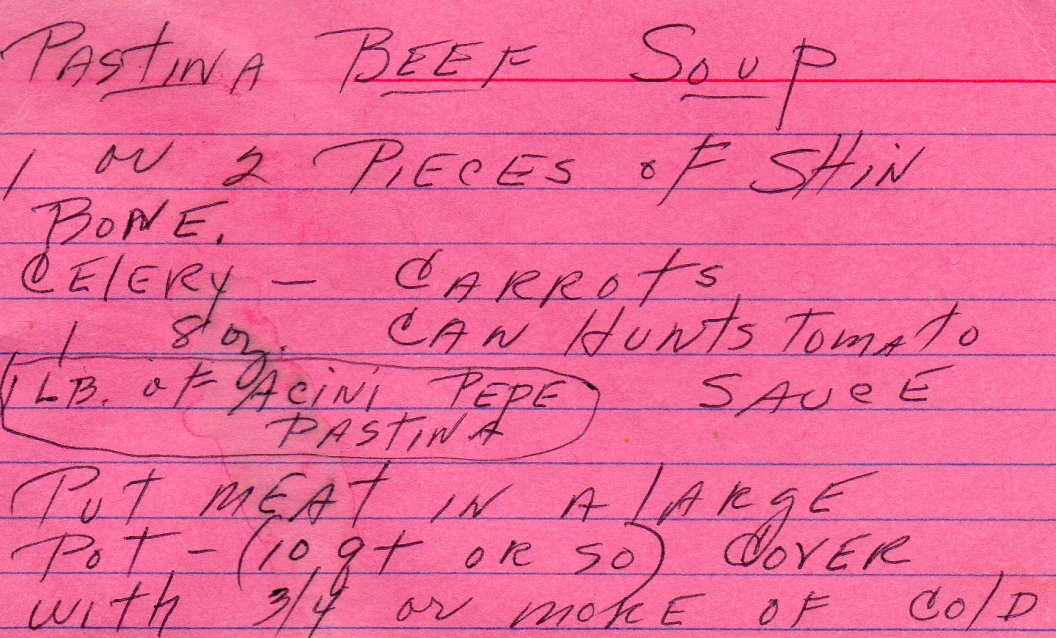 PASTINA BEEF SOUP
1 or 2 PIECES OF SHIN
BONE.
CELERY - CARROTS
1 8 oz. CAN HUNTS TOMATO
1 LB. OF ACINI PEPE SAUCE
PASTINA
PUT MEAT IN A LARGE
POT - (10 qt OR SO) COVER
WITH 3/4 or MORE OF COLD